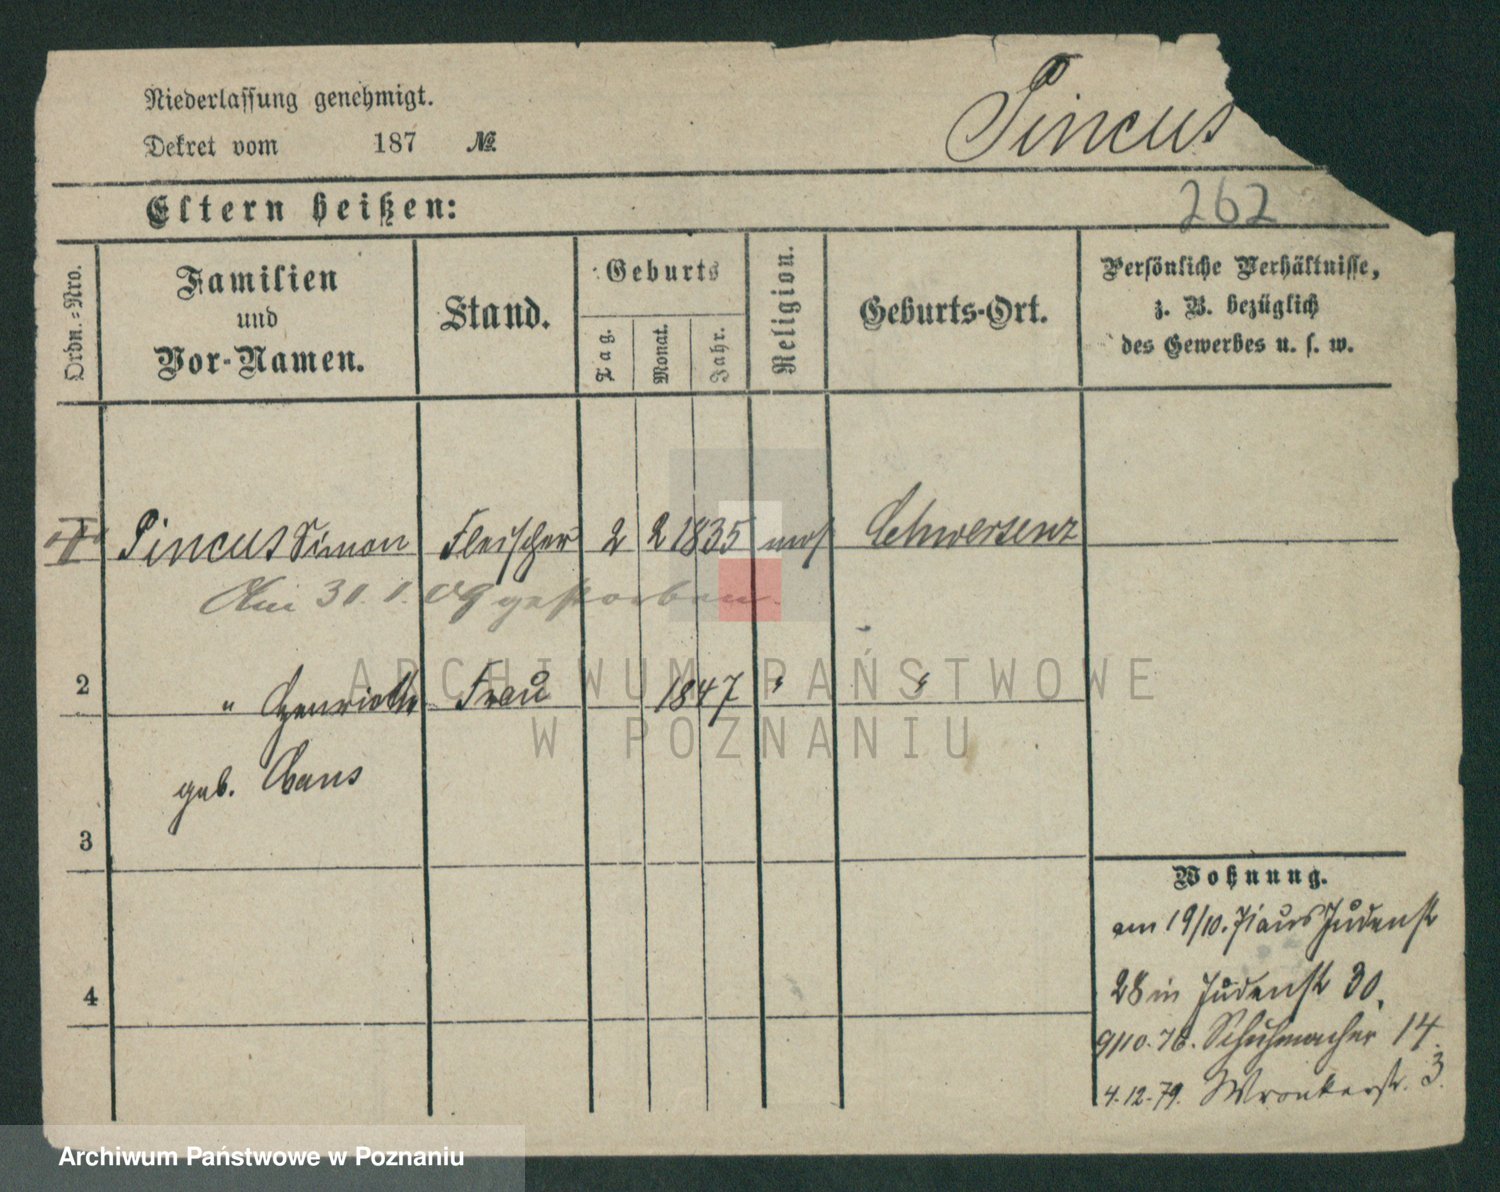 Niederlassung genehmigt.
Dekret vom 187 №
Pincus
262
Eltern heißen:
Ordn.-Nro.
Familien
und
Vor-Namen.
Stand.
Geburts
Tag.
Monat.
Jahr.
Religion.
Geburts-Ort.
Persönliche Verhältnisse,
z. B. bezüglich
des Gewerbes u. s. w.
Pincus Simon Fleischer 2 2 1835 mos Schwersenz
Am 31. 1. 09 gestorben.
2 " Henriette Frau 1847 " "
geb.
3
4
Wohnung.
am 19/10. 71 aus Judenstr
28 in Judenstr 30.
9/10. 76. Schuhmacher 14.
4.12.79. Wronkerstr. 3.
ARCHIWUM PAŃSTWOWE
W POZNANIU
Archiwum Państwowe w Poznaniu